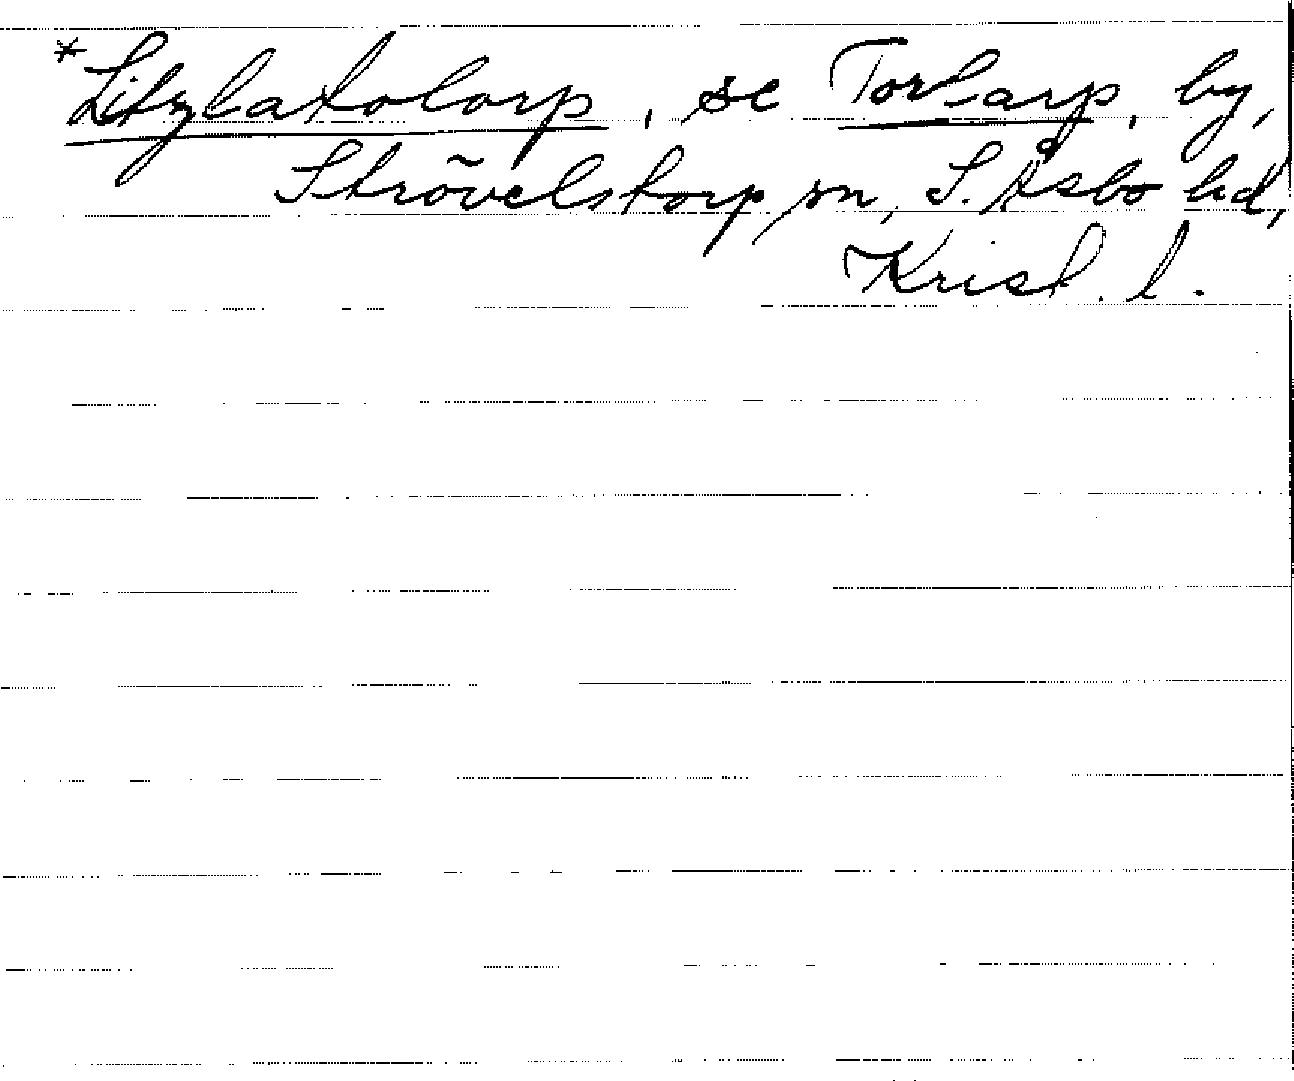 *Litzlatolorp, se Torlarp, by,
Strövelstorp sn, S. Åsbo hd,
Krist. l.